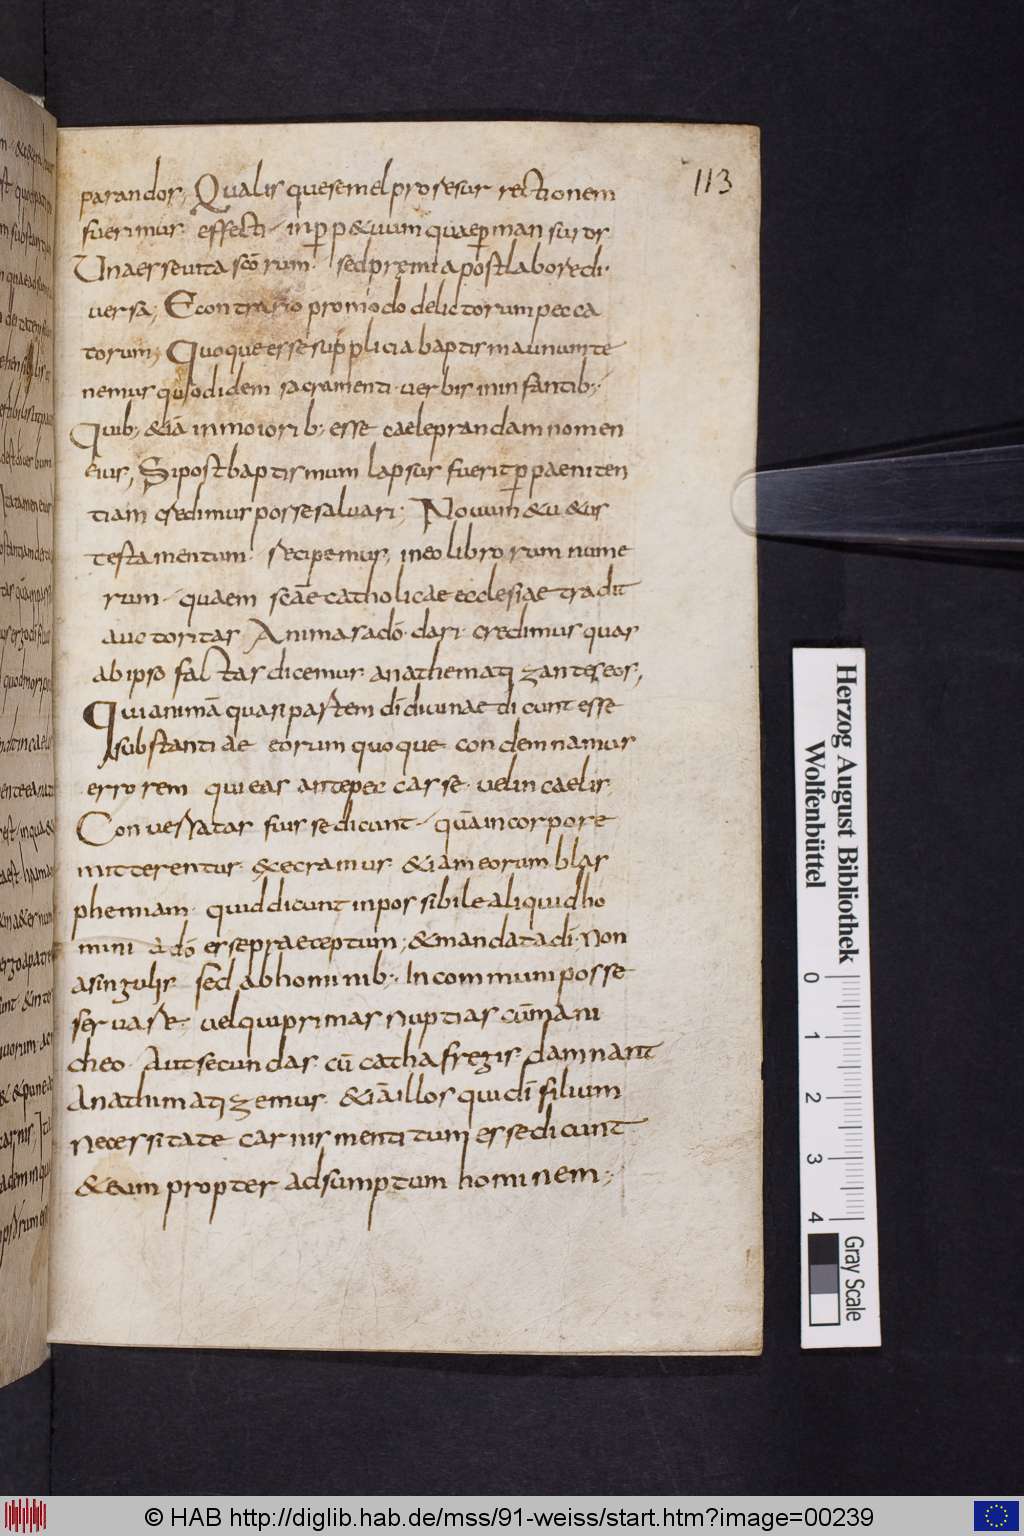 113
parandos; Qualis que semel pro resur rectionem
fuerimus effecti inp̱p&uum quaep̱man suros
Una erse uita scōrum sed premia post labore di
uersa; Econtrario promodo delictorum pecca
torum; Quoque esse supplicia baptisma unum te
nemus quod idem sacramenti uerbis in infantib;
Quib; &iā inmoiorib; esse caeleprandam nomen
eius; Si post baptismum lapsus fuerit p̱ paeniten
tiam credimus posse saluari; Nouum &u&us
testamentum recipemus, ineo librorum nume
rum quaem scāe catholicae ecclesiae tradit
auctoritas Animas adō dari credimus quas
ab ipso factas dicemus anathematizantes eos,
Qui animā quasi partem dī diuinae dicunt esse
substantiae eorum quoque condemnamus
errorem qui eas ante peccasse uel in caelis
Conuersatas fuisse dicunt quā in corpore
mitterentur &cecramus &iam eorum blas
phemiam quid dicunt inpossibile aliquid ho
mini adō esse praeceptum; &mandata dī non
asingulis sed ab hominib; In commum posse
seruare uel qui primas nuptias cūmani
cheo Aut secundas cū cathafregis damnant
Anathematizemus &iā illos qui dī filium
necessitate carnis mentitum esse dicunt
&eum propter adsumptum hominem;
Herzog August Bibliothek
Wolfenbüttel
0 1 2 3 4
Gray Scale
© HAB http://diglib.hab.de/mss/91-weiss/start.htm?image=00239